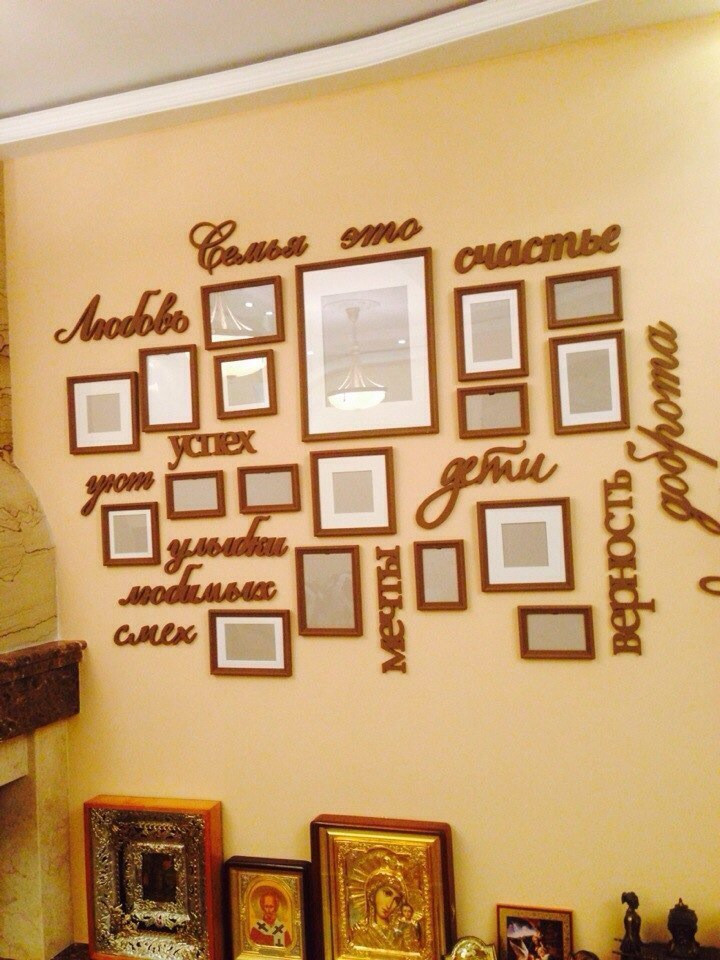 Семья это счастье
Любовь
успех
уют
дети
доброта
верность
улыбки
любимых
мечты
смех